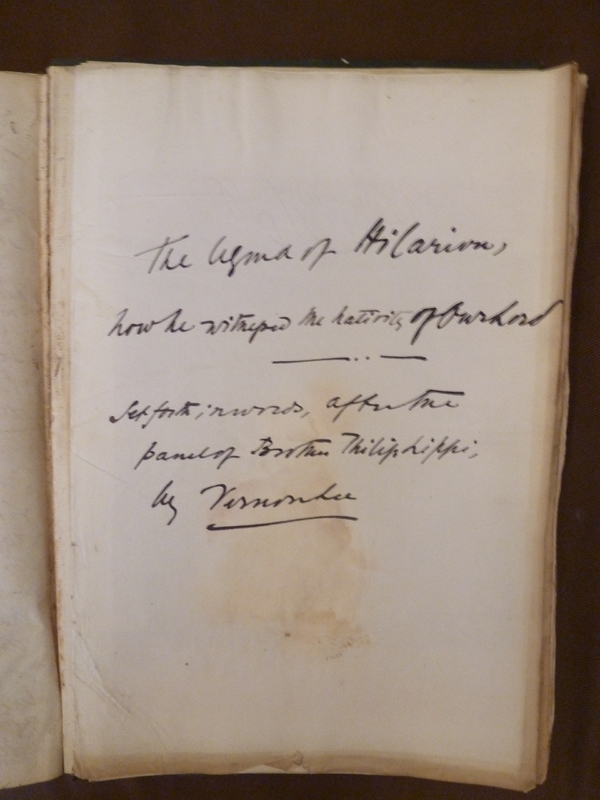 The legend of Hilarion,
how he witnessed the nativity of Our Lord
Set forth, in words, after the
panel of Brother Philip Lippi,
by Vernon Lee